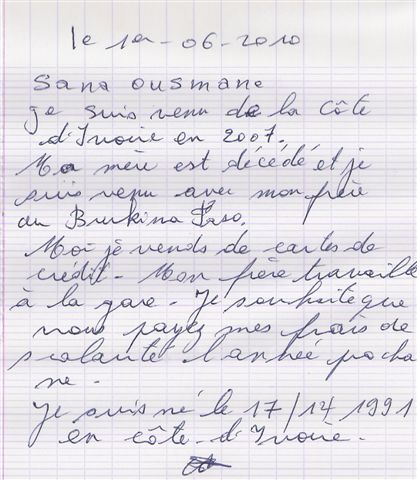 le 1er-06-2010
Sana ousmane
je suis venu de la Côte
d'Ivoire en 2007.
Ma mère est décédé et je
suis venu avec mon frère
au Burkina Faso.
Moi je vends de cartes de
crédit. Mon frère travaille
à la gare. Je souhaite que
vous payez mes frais de
scolarité l'année pocha
ne.
Je suis né le 17/14 1991
en côte-d'Ivoire.